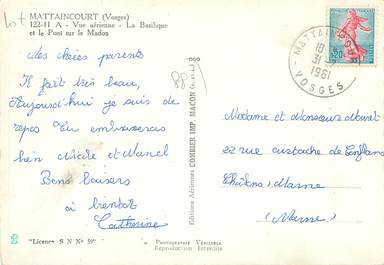 lot
MATTAINCOURT (Vosges)
122-11 A - Vue aérienne - La Basilique
et le Pont sur le Madon
Mes chères parents
Il fait très beau,
Aujourd'hui je suis de
repos Tu embrasseras
bien Nicole et Marcel
Bons baisers
à bientot
Catherine
"Licence S N N°
PHOTOGRAPHIE VÉRITABLE
Reproduction Interdite
Editions Aériennes COMBIER IMP. MACON
MATTAINCOURT
18
31
1961
VOSGES
0,20
Madame et Monsieur
22 rue eustache de Conflans
Châlons s/ Marne
(Marne)